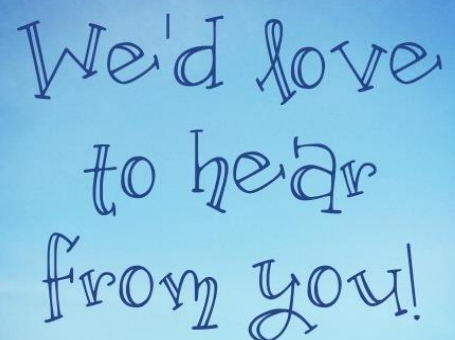 We'd love
to hear
from you!